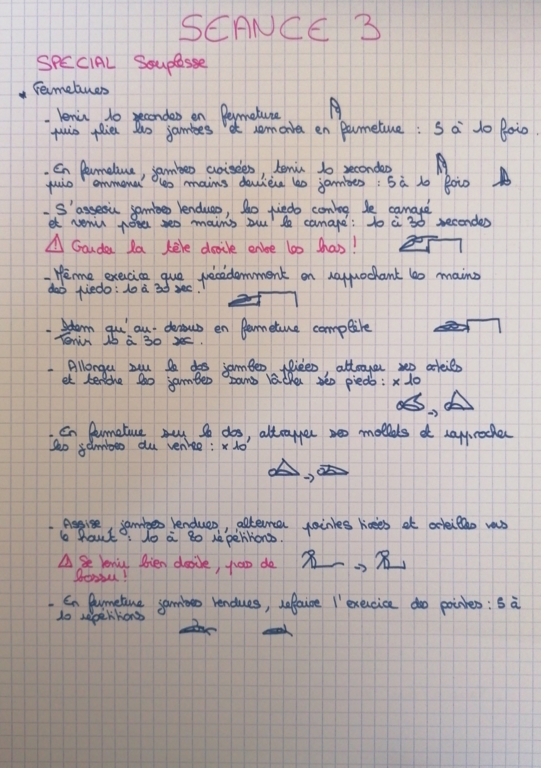 SEANCE 3
SPECIAL Souplesse
• Fermetures
- Tenir 10 secondes en fermeture
puis plier les jambes et remonter en fermeture : 5 à 10 fois.
- En fermeture, jambes croisées, tenir 10 secondes
puis emmener les mains derrière les jambes : 5 à 10 fois
- S'asseoir jambes tendues, les pieds contre le canapé
et venir poser ses mains sur le canapé : 10 à 30 secondes
⚠ Garder la tête droite entre les bras !
- Même exercice que précédemment en rapprochant les mains
des pieds : 10 à 30 sec.
- Idem qu'au-dessus en fermeture complète
Tenir 10 à 30 sec.
- Allongé sur le dos jambes pliées, attraper ses orteils
et tendre les jambes sans lâcher ses pieds : x 10
- En fermeture sur le dos, attrapper ses mollets et rapprocher
les jambes du ventre : x 10
- Assise, jambes tendues, alterner pointes tirées et orteilles vers
le haut : 10 à 20 répétitions.
⚠ Se tenir bien droite, pas de
bossu !
- En fermeture jambes tendues, refaire l'exercice des pointes : 5 à
10 répétitions